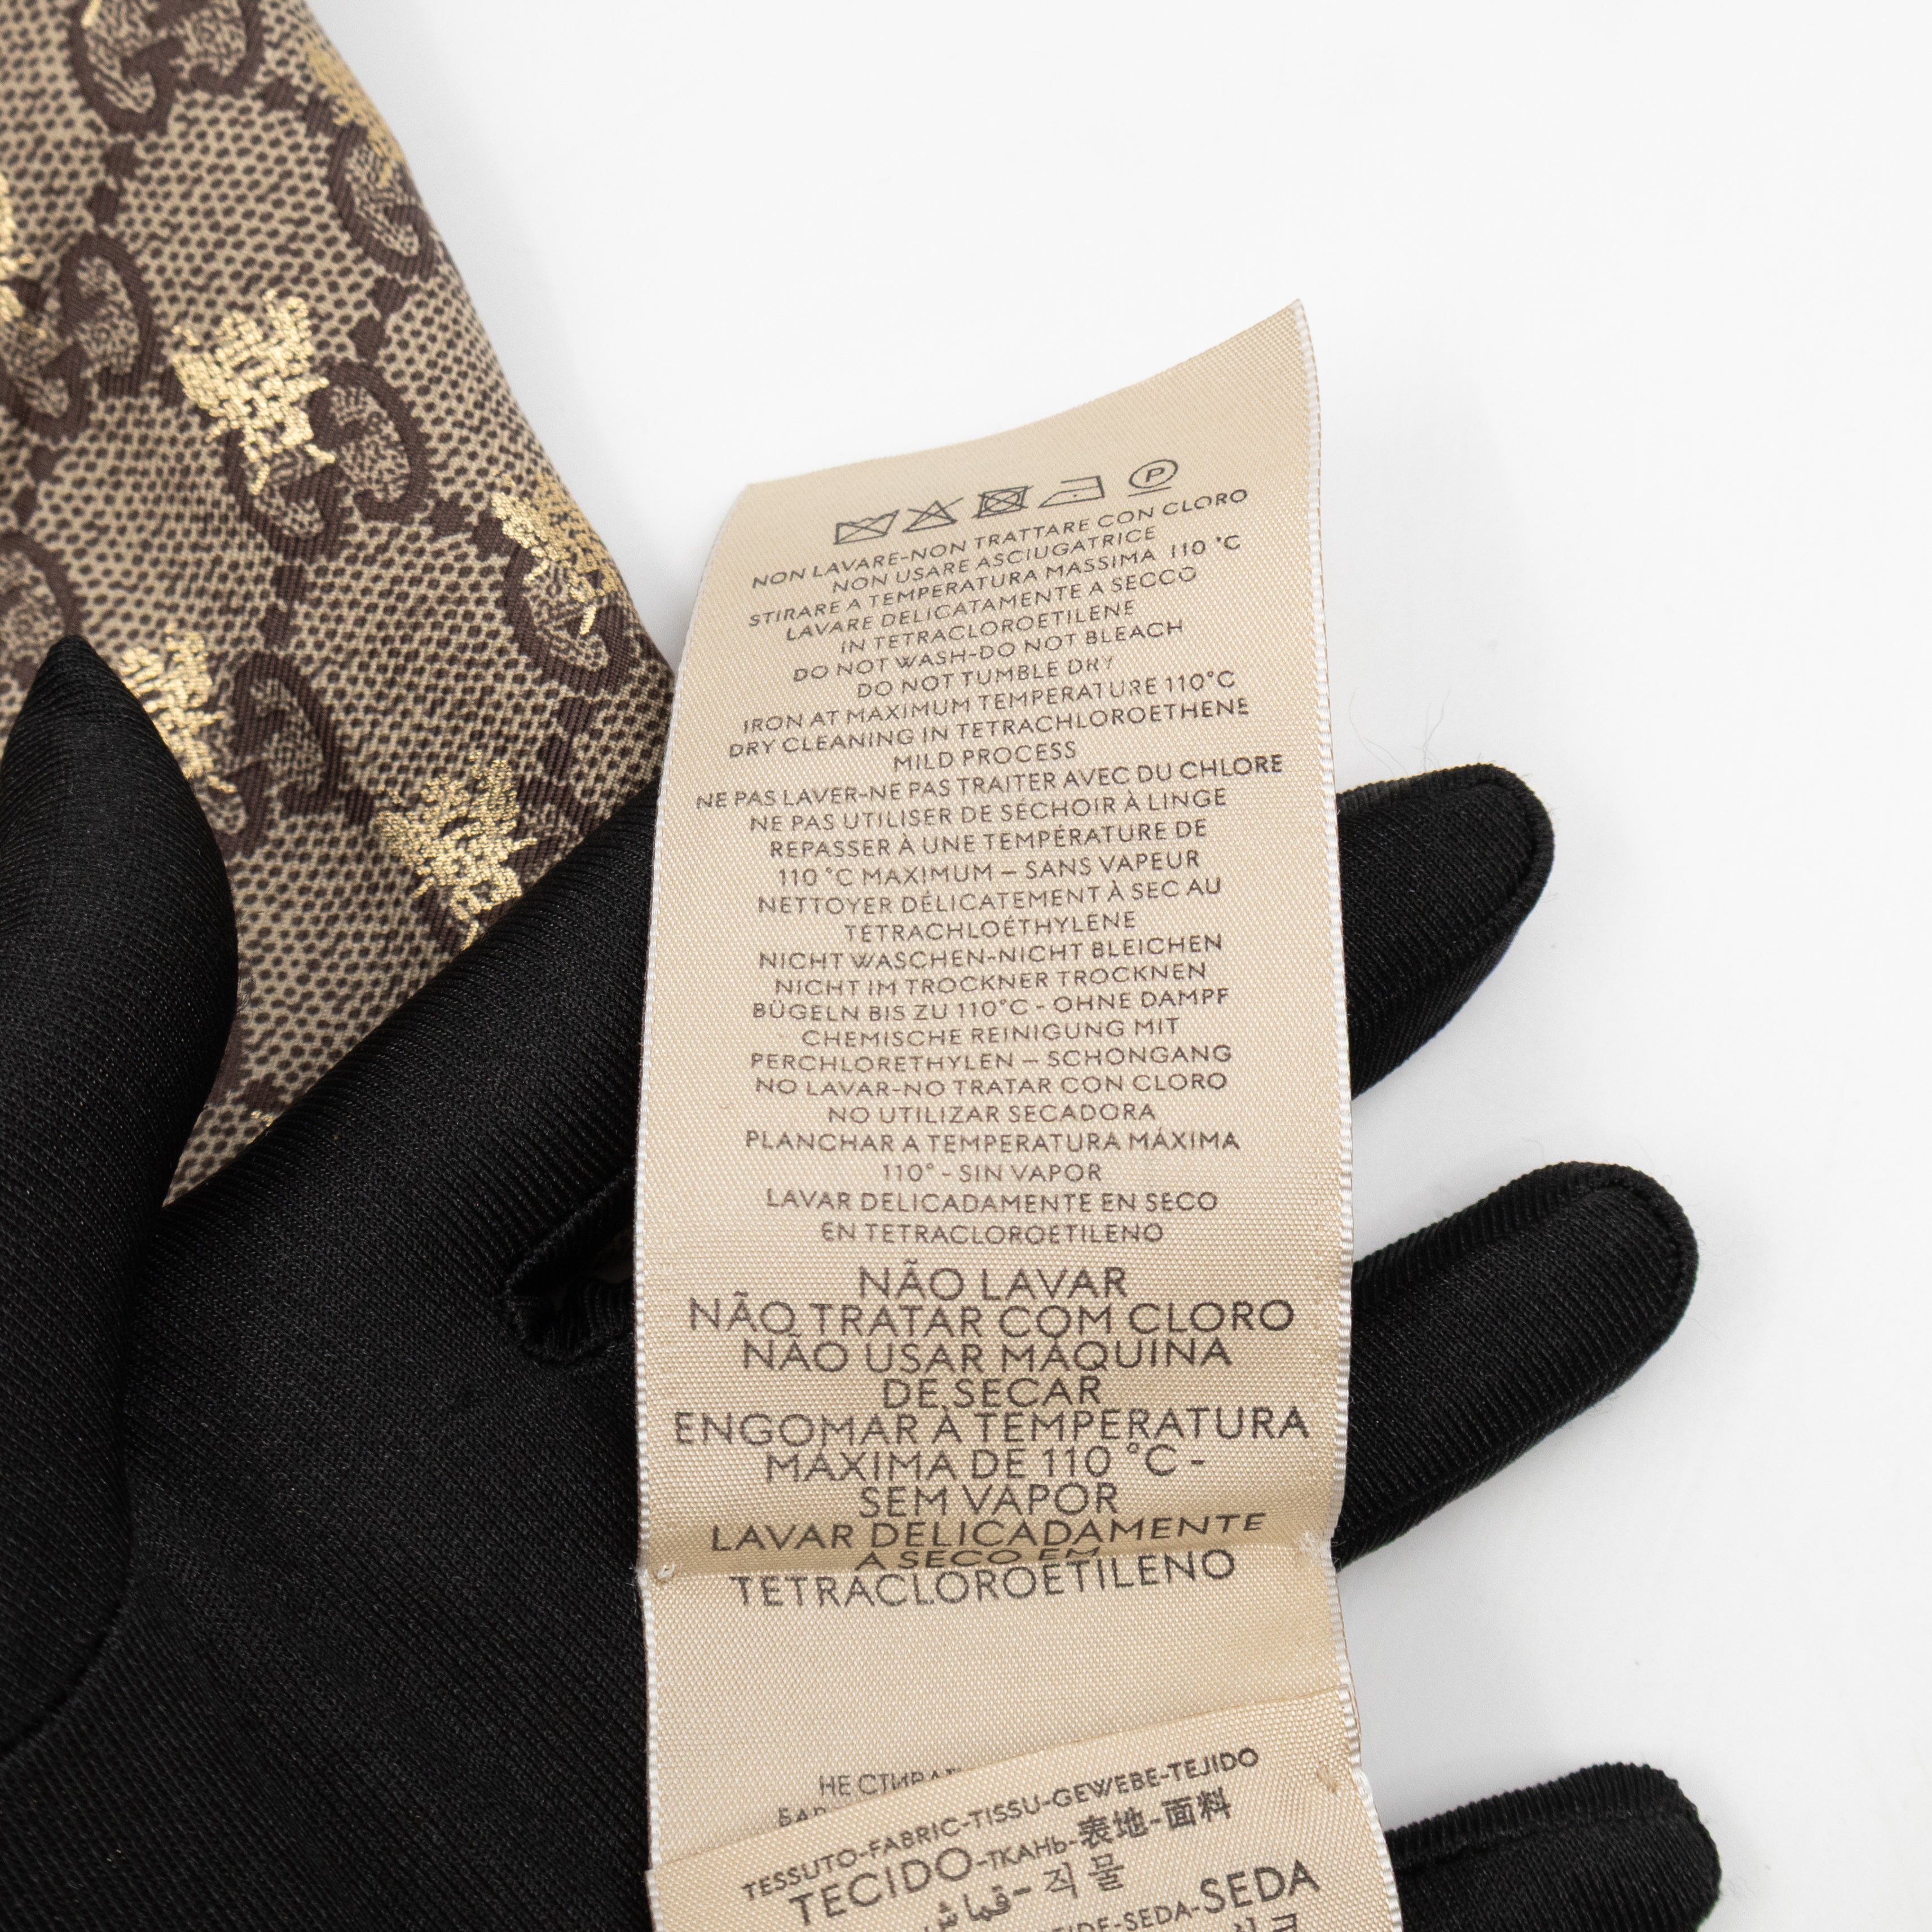 P
NON LAVARE-NON TRATTARE CON CLORO
NON USARE ASCIUGATRICE
STIRARE A TEMPERATURA MASSIMA 110 °C
LAVARE DELICATAMENTE A SECCO
IN TETRACLOROETILENE
DO NOT WASH-DO NOT BLEACH
DO NOT TUMBLE DRY
IRON AT MAXIMUM TEMPERATURE 110°C
DRY CLEANING IN TETRACHLOROETHENE
MILD PROCESS
NE PAS LAVER-NE PAS TRAITER AVEC DU CHLORE
NE PAS UTILISER DE SÉCHOIR À LINGE
REPASSER À UNE TEMPÉRATURE DE
110 °C MAXIMUM – SANS VAPEUR
NETTOYER DÉLICATEMENT À SEC AU
TÉTRACHLOÉTHYLÈNE
NICHT WASCHEN-NICHT BLEICHEN
NICHT IM TROCKNER TROCKNEN
BÜGELN BIS ZU 110°C - OHNE DAMPF
CHEMISCHE REINIGUNG MIT
PERCHLORETHYLEN – SCHONGANG
NO LAVAR-NO TRATAR CON CLORO
NO UTILIZAR SECADORA
PLANCHAR A TEMPERATURA MÁXIMA
110° - SIN VAPOR
LAVAR DELICADAMENTE EN SECO
EN TETRACLOROETILENO
NÃO LAVAR
NÃO TRATAR COM CLORO
NÃO USAR MÁQUINA
DE SECAR
ENGOMAR À TEMPERATURA
MÁXIMA DE 110 °C -
SEM VAPOR
LAVAR DELICADAMENTE
A SECO EM
TETRACLOROETILENO
НЕ
TESSUTO-FABRIC-TISSU-GEWEBE-TEJIDO
TECIDO-ТКАНЬ-表地-面料
قماش-직물
SEDA-SEDA